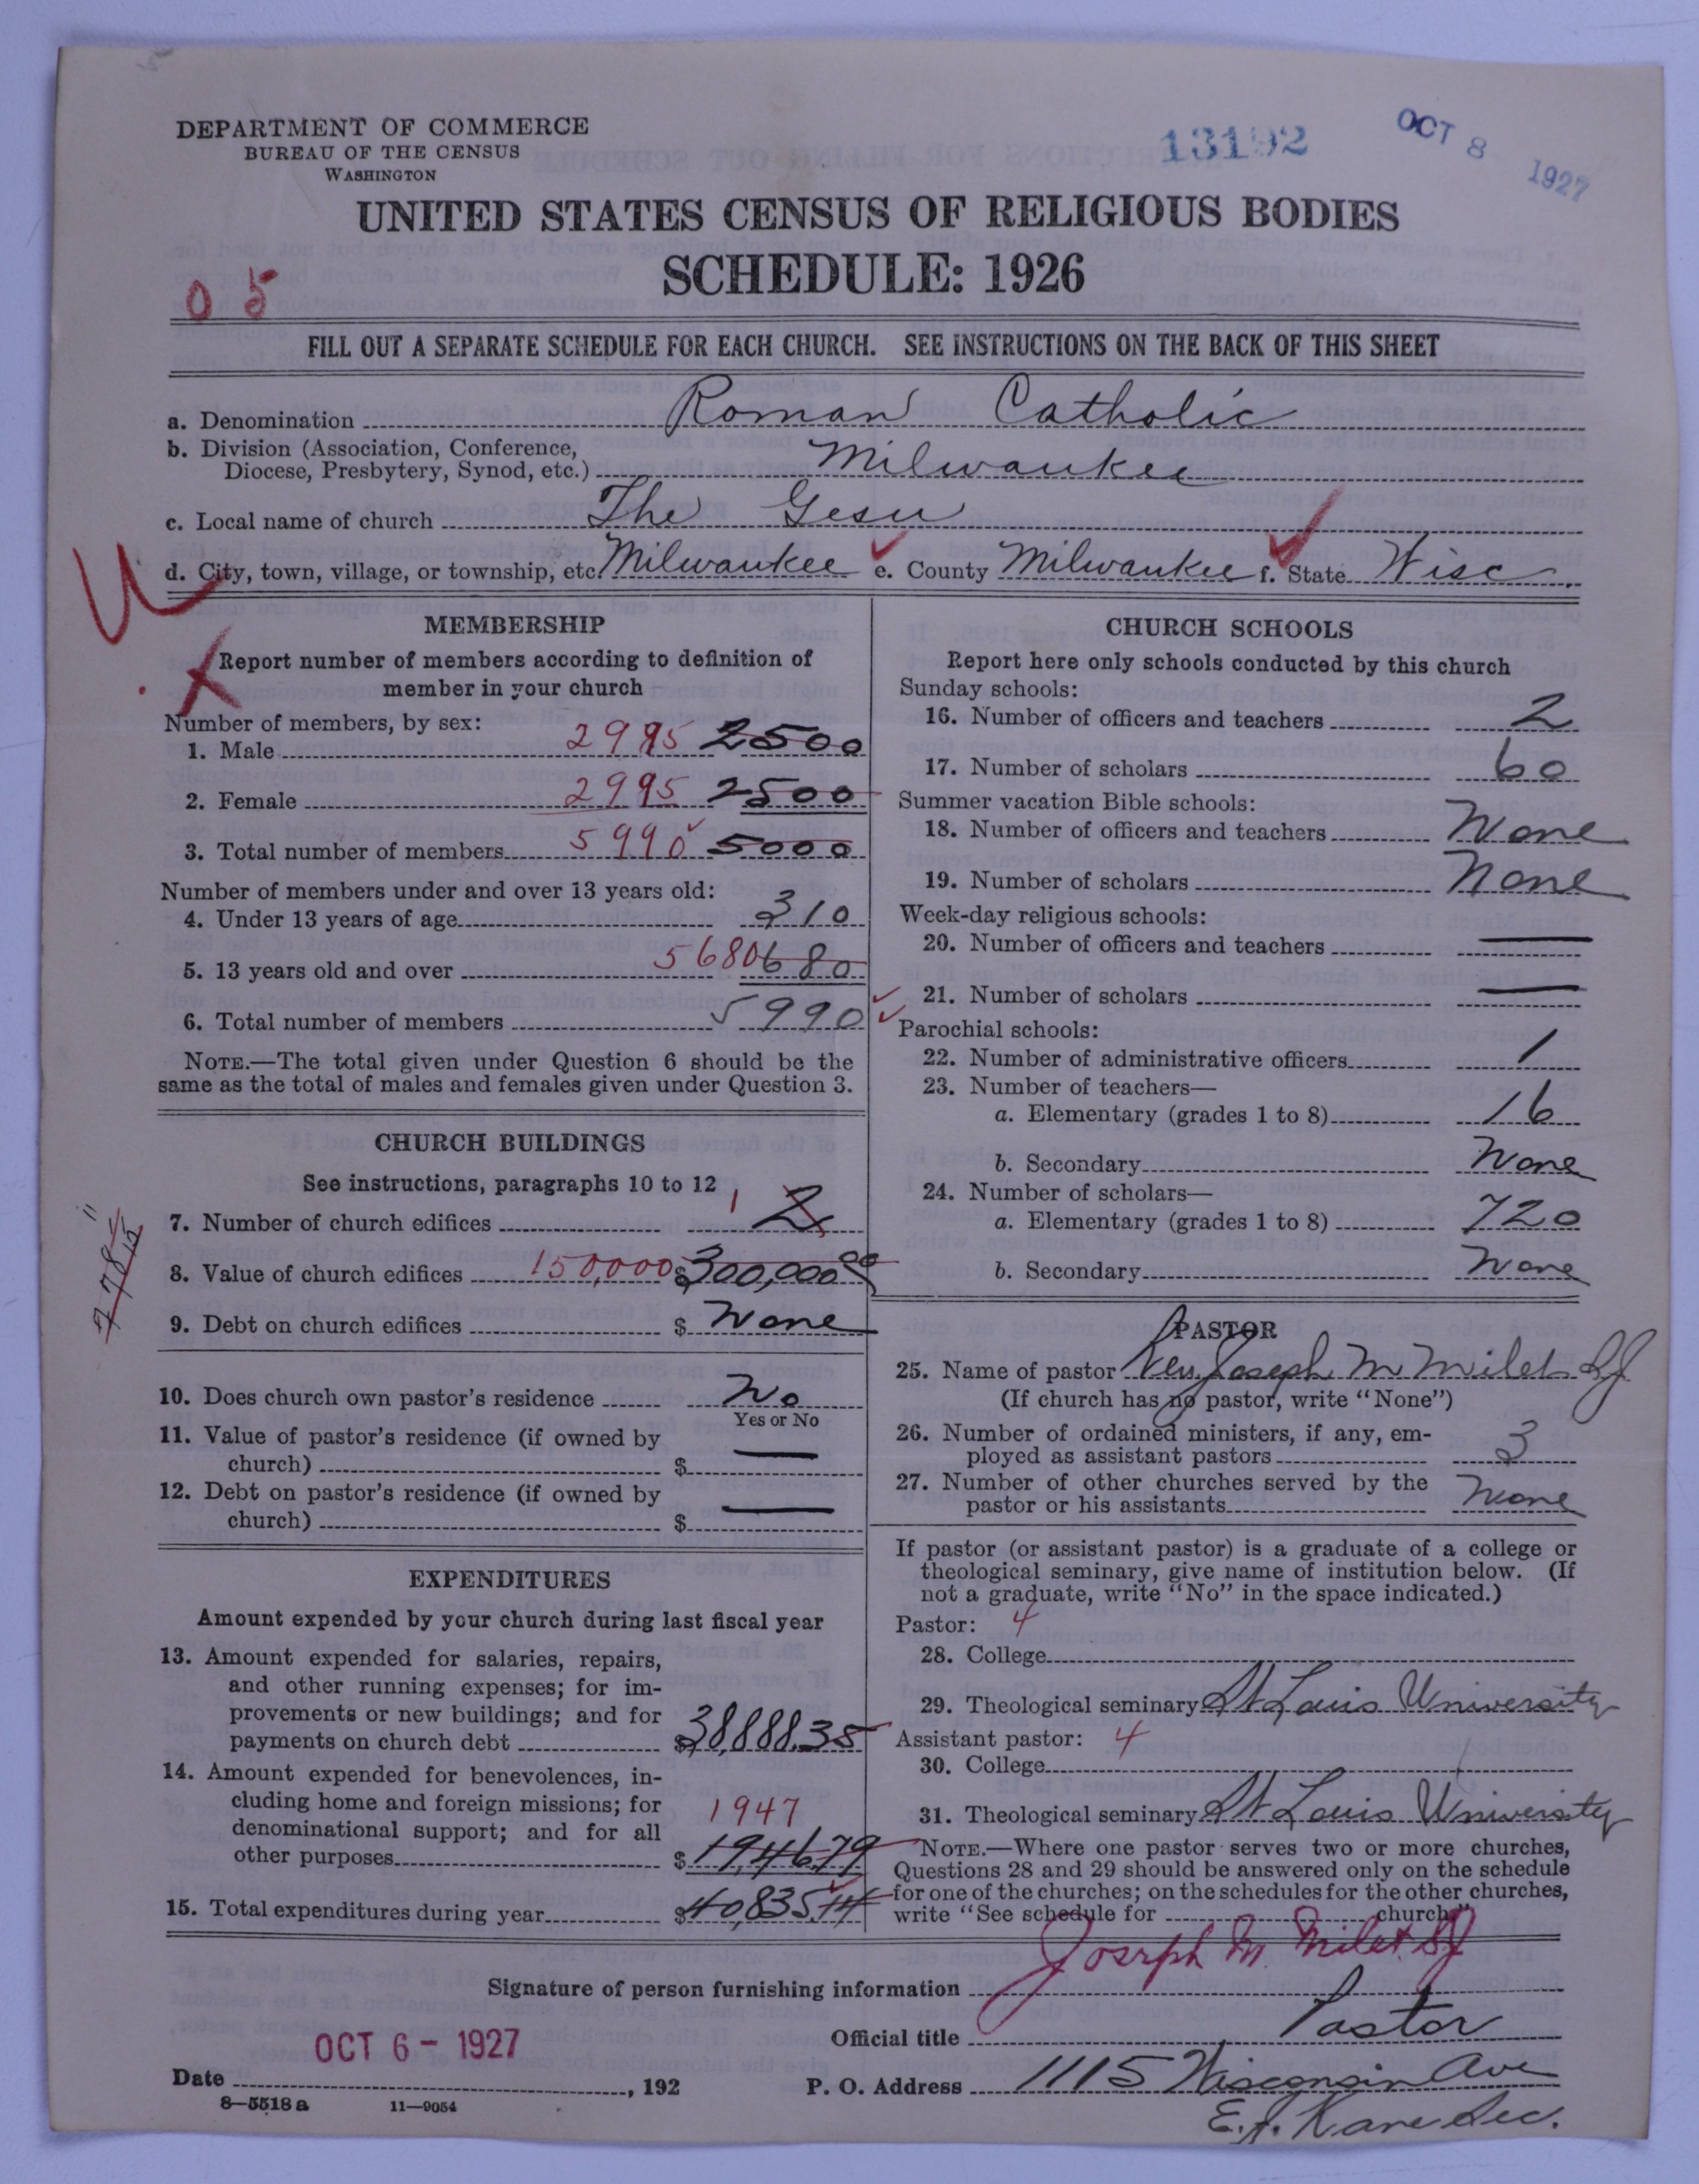 DEPARTMENT OF COMMERCE
BUREAU OF THE CENSUS
WASHINGTON
13192
OCT 8 1927
UNITED STATES CENSUS OF RELIGIOUS BODIES
SCHEDULE: 1926
0 5
FILL OUT A SEPARATE SCHEDULE FOR EACH CHURCH. SEE INSTRUCTIONS ON THE BACK OF THIS SHEET
a. Denomination Roman Catholic
b. Division (Association, Conference,
Diocese, Presbytery, Synod, etc.) Milwaukee
c. Local name of church The Gesu
d. City, town, village, or township, etc. Milwaukee e. County Milwaukee f. State Wisc.
U
X
MEMBERSHIP
Report number of members according to definition of
member in your church
Number of members, by sex:
1. Male 2995 2500
2. Female 2995 2500
3. Total number of members 5990 5000
Number of members under and over 13 years old:
4. Under 13 years of age 310
5. 13 years old and over 5680 680
6. Total number of members 5990
NOTE.—The total given under Question 6 should be the
same as the total of males and females given under Question 3.
CHURCH BUILDINGS
See instructions, paragraphs 10 to 12
7. Number of church edifices 1 2
8. Value of church edifices 150,000 $300,000 00
9. Debt on church edifices $ None
10. Does church own pastor's residence No
Yes or No
11. Value of pastor's residence (if owned by
church) $ —
12. Debt on pastor's residence (if owned by
church) $ —
EXPENDITURES
Amount expended by your church during last fiscal year
13. Amount expended for salaries, repairs,
and other running expenses; for im-
provements or new buildings; and for
payments on church debt $38,888.35
14. Amount expended for benevolences, in-
cluding home and foreign missions; for
denominational support; and for all 1947
other purposes $1,946.79
15. Total expenditures during year $40,835.14
CHURCH SCHOOLS
Report here only schools conducted by this church
Sunday schools:
16. Number of officers and teachers 2
17. Number of scholars 60
Summer vacation Bible schools:
18. Number of officers and teachers None
19. Number of scholars None
Week-day religious schools:
20. Number of officers and teachers —
21. Number of scholars —
Parochial schools:
22. Number of administrative officers 1
23. Number of teachers—
a. Elementary (grades 1 to 8) 16
b. Secondary None
24. Number of scholars—
a. Elementary (grades 1 to 8) 720
b. Secondary None
PASTOR
25. Name of pastor Rev. Joseph M Milet SJ
(If church has no pastor, write "None")
26. Number of ordained ministers, if any, em-
ployed as assistant pastors 3
27. Number of other churches served by the
pastor or his assistants None
If pastor (or assistant pastor) is a graduate of a college or
theological seminary, give name of institution below. (If
not a graduate, write "No" in the space indicated.)
Pastor: 4
28. College
29. Theological seminary St Louis University
Assistant pastor: 4
30. College
31. Theological seminary St Louis University
NOTE.—Where one pastor serves two or more churches,
Questions 28 and 29 should be answered only on the schedule
for one of the churches; on the schedules for the other churches,
write "See schedule for church."
Signature of person furnishing information Joseph M. Milet SJ
Official title Pastor
OCT 6 - 1927
Date , 192
P. O. Address 1115 Wisconsin Ave
8—5518 a 11—9054
E.J. Kane Sec.